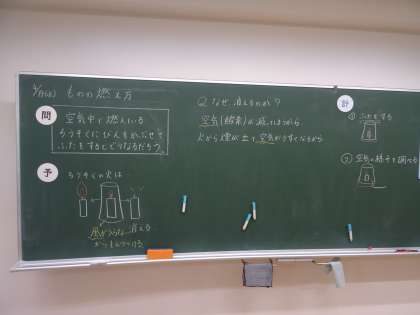 ものの燃え方
問
空気中で燃えている
ろうそくにびんをかぶせて
ふたをするとどうなるだろう。
予
ろうそくの火は
消える
Q なぜ、消えるのか?
空気(酸素)が減ってしまうから
火から煙が出て空気がうすくなるから
計
① ふたをする
② 空気の様子を調べる